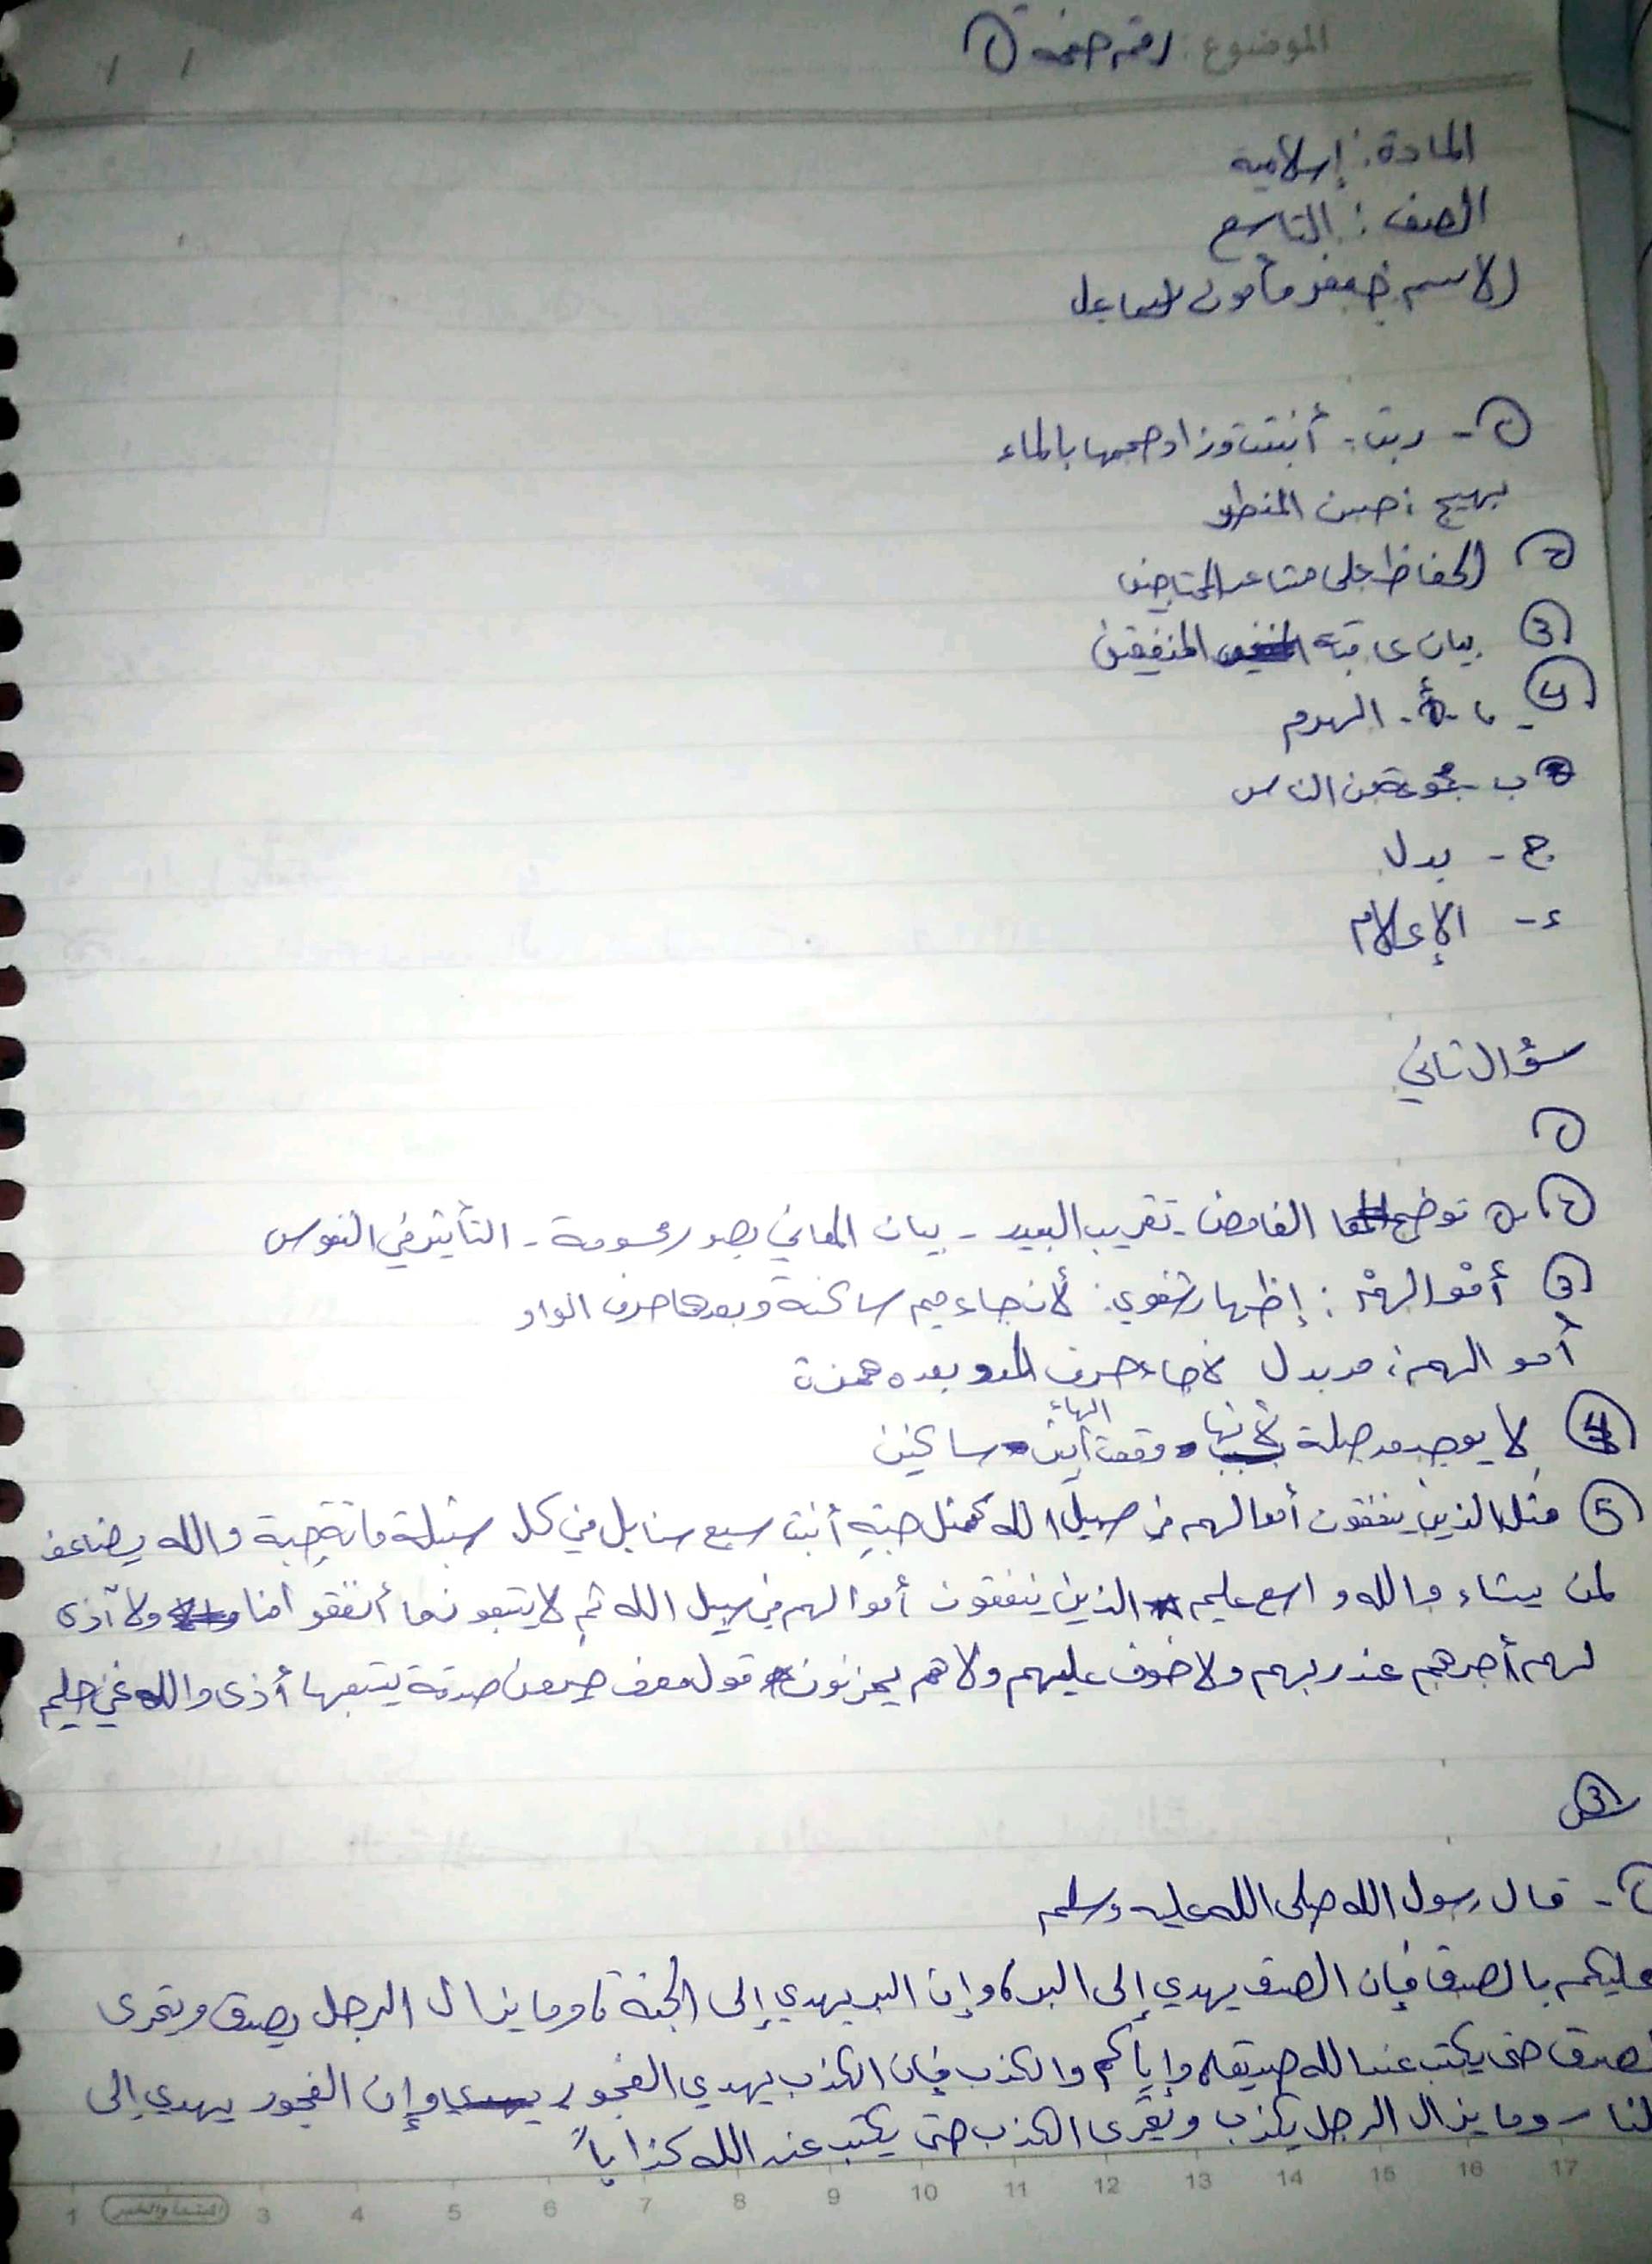 الموضوع: رقم صفحة ①
المادة: إسلامية
الصف: التاسع
الاسم جعفر مأمون اسماعيل
①- ربت: أنبتت وزاد حجمها بالماء
بهيج: حسن المنظر
② الحفاظ على مشاعر المحتاجين
③ بيان عاقبة المنفقين
④- أ- الهدم
ب- مجموعة من الناس
ج- بدل
د- الإعلام
سؤال ثاني
①
② توضح الغامض - تقريب البعيد - بيان المعاني بصور محسومة - التأثير في النفوس
③ أمْوالهمْ: إظهار شفوي: لأن جاء ميم ساكنة وبعدها حرف الواو
أموالهم: مد بدل لأن جاء حرف المد وبعده همزة
④ لا يوجد مد صلة لأنها وقعت الهاء بين ساكنين
⑤ مثل الذين ينفقون أموالهم في سبيل الله كمثل حبةٍ أنبتت سبع سنابل في كل سنبلة مائة حبة والله يضاعف
لمن يشاء والله واسع عليم * الذين ينفقون أموالهم في سبيل الله ثم لا يتبعون ما أنفقو امنا ولا أذى
لهم أجرهم عند ربهم ولا خوف عليهم ولا هم يحزنون * قول معرف خير من صدقة يتبعها أذى والله غني حليم
س③
①- قال رسول الله صلى الله عليه وسلم
عليكم بالصدق فإن الصدق يهدي إلى البر، وإن البر يهدي إلى الجنة، وما يزال الرجل يصدق ويتحرى
الصدق حتى يكتب عند الله صديقا، وإياكم والكذب فإن الكذب يهدي الفجور وإن الفجور يهدي إلى
النار وما يزال الرجل يكذب ويتحرى الكذب حتى يكتب عند الله كذاباً
1 3 4 5 6 7 8 9 10 11 12 13 14 15 16 17